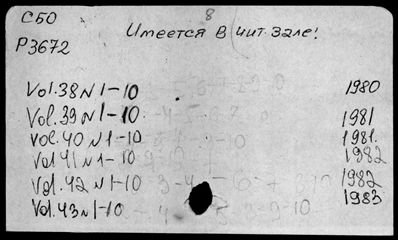 С50 8
Р3672 Имеется в чит зале!
Vol.38 N 1-10 1980
Vol.39 N 1-10 1981
Vol.40 N 1-10 1981.
Vol 41 N 1-10 1982
Vol.42 N 1-10 1982
Vol.43 N 1-10 1983